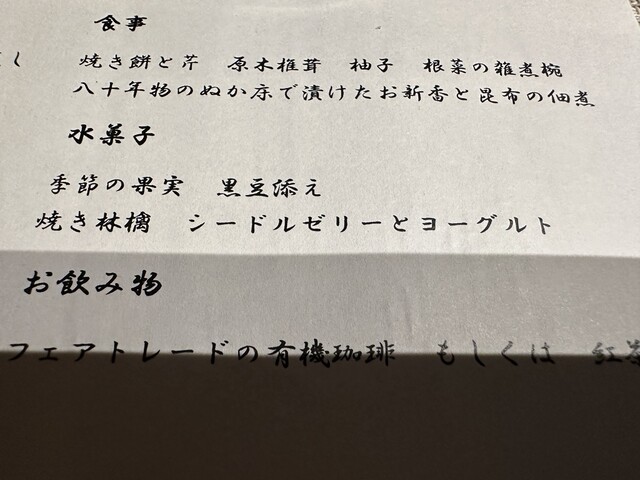 食事
焼き餅と芹　原木椎茸　柚子　根菜の雑煮椀
八十年物のぬか床で漬けたお新香と昆布の佃煮
水菓子
季節の果実　黒豆添え
焼き林檎　シードルゼリーとヨーグルト
お飲み物
フェアトレードの有機珈琲　もしくは　紅茶